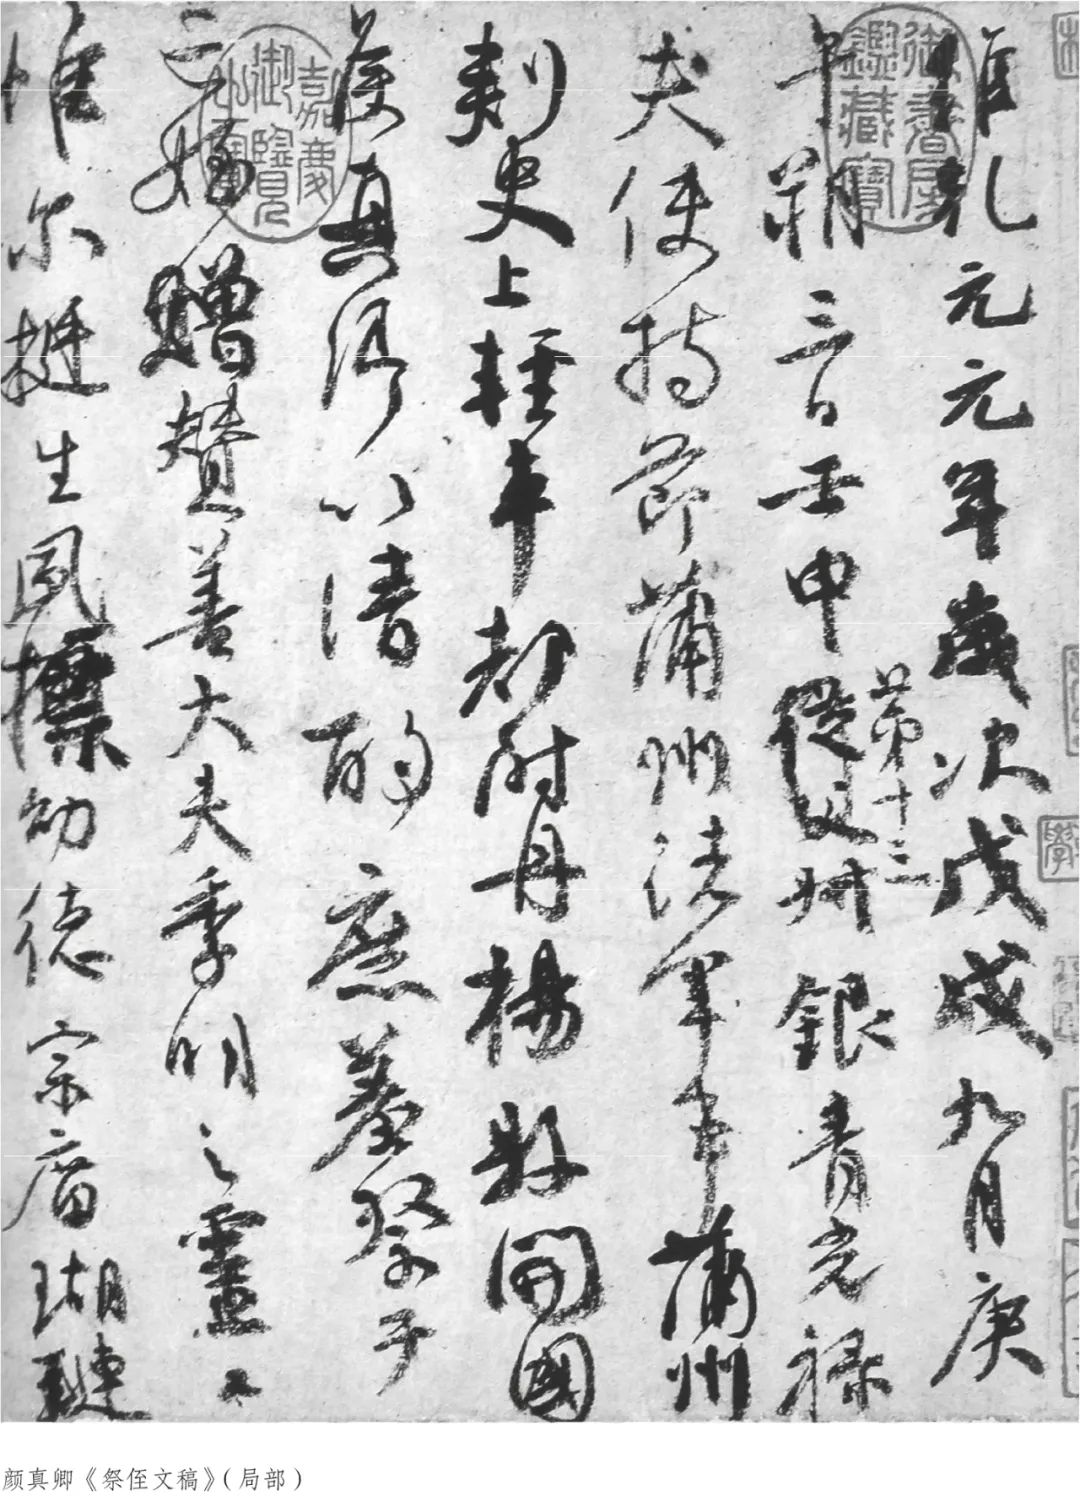 維乾元元年歲次戊戌九月庚
午朔三日壬申從父叔銀青光祿
第十三
夫使持節蒲州諸軍事蒲州
刺史上輕車都尉丹楊縣開國
侯真卿以清酌庶羞祭于
亡姪贈贊善大夫季明之靈曰
惟尔挺生夙標幼德宗廟瑚璉
御書房鑑藏寶
嘉慶御覽之寶
颜真卿《祭侄文稿》（局部）